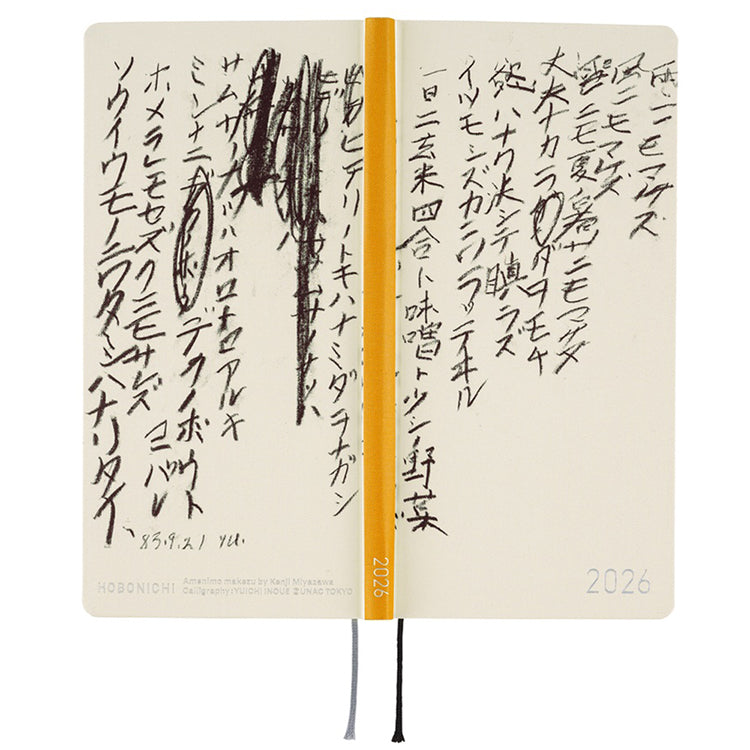 雨ニモマケズ
風ニモマケズ
雪ニモ夏ノ暑サニモマケヌ
丈夫ナカラダヲモチ
慾ハナク決シテ瞋ラズ
イツモシズカニワラッテヰル
一日ニ玄米四合ト味噌ト少シノ野菜
ヒデリノトキハナミダヲナガシ
サムサノナツハオロオロアルキ
ミンナニデクノボウト
ヨバレ
ホメラレモセズクニモサレズ
ソウイウモノニワタシハナリタイ
83.9.21 yu.
HOBONICHI
Amenimo makezu by Kenji Miyazawa
Calligraphy:YUICHI INOUE ©UNAC TOKYO
2026
2026